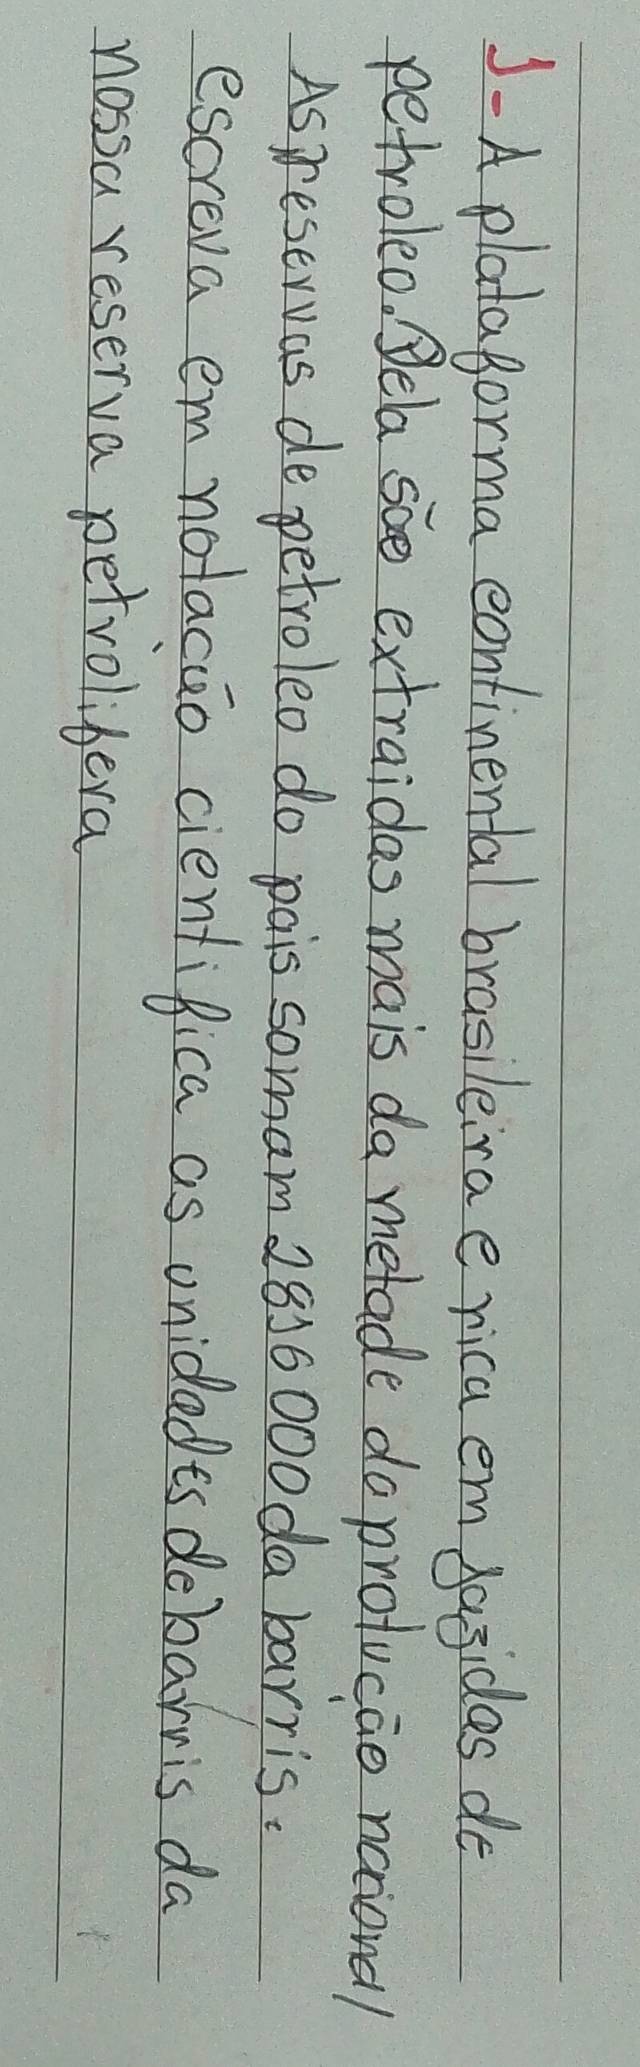 1- A plataforma continental brasileira e rica em jazidas de
petroleo. Dela são extraidas mais da metade da protução nacional
As reservas de petroleo do pais somam 2816000 da barris.
escreva em notação cientifica as unidades de barris da
nossa reserva petrolifera